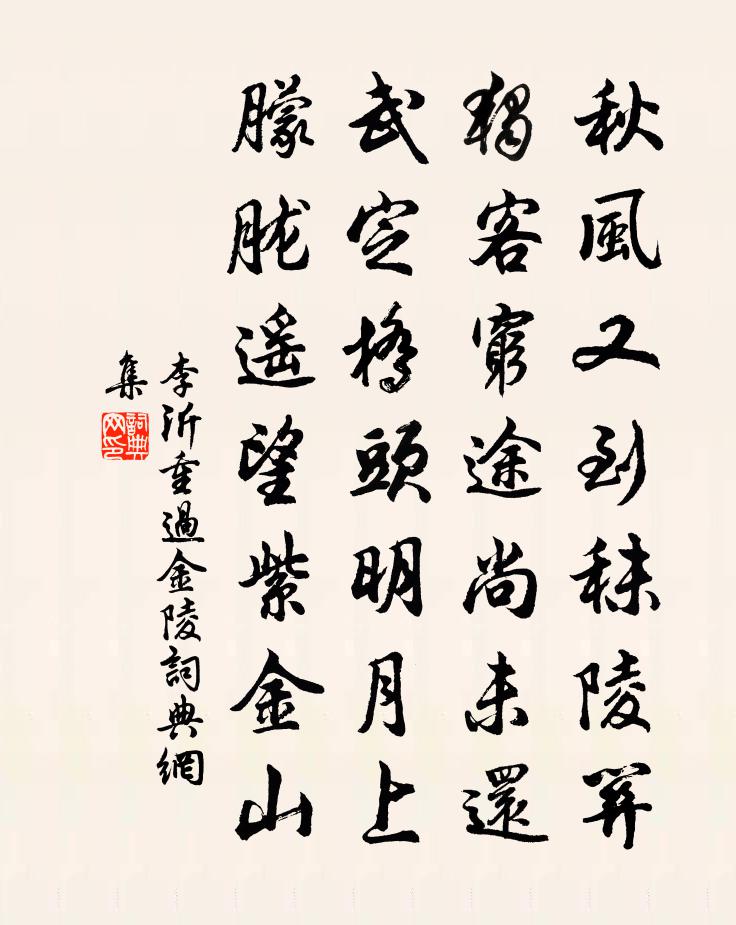 秋風又到秣陵關
獨客窮途尚未還
武定橋頭明月上
朦胧遥望紫金山
李沂重過金陵詞典網
集
詞典
网印